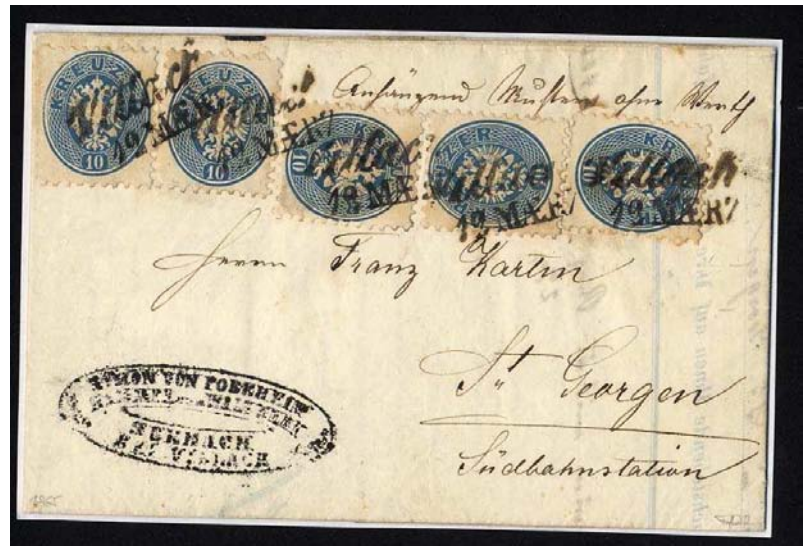 KREUZER
10
KREUZER
10
KR
10
ZER
KR
10
Villach
19. MÆRZ
Villach
19. MÆRZ
Villach
19. MÆRZ
Villach
19. MÆRZ
Villach
19. MÆRZ
Anhängend Muster ohne Werth
Herrn Franz
St Georgen
Südbahnstation
SIMON VON
SEEBACH
BEI VILLACH
1865